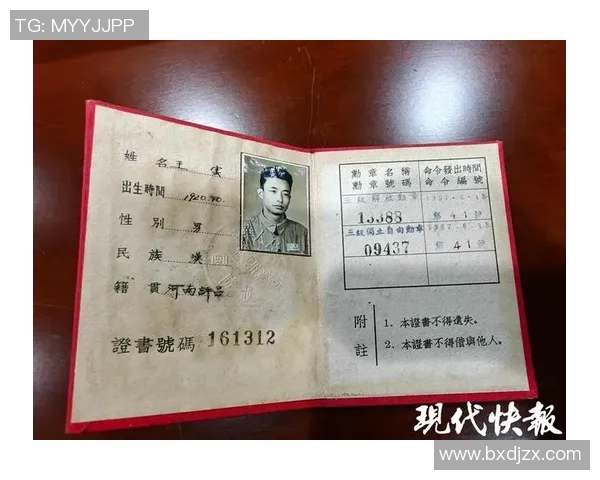 TG: MYYJJPP
姓 名 王 寔
出生時間 1920.10.
性 別 男
民 族 漢
籍 貫 河南許昌
證書號碼 161312
勳章名稱 命令發出時間
勳章號碼 命令編號
三級解放勳章 1957.6.18
13388 第41號
三級獨立自由勳章 1957.6.18
09437 第41號
附註
1. 本證書不得遺失。
2. 本證書不得借與他人。
现代快報
www.bxdjzx.com